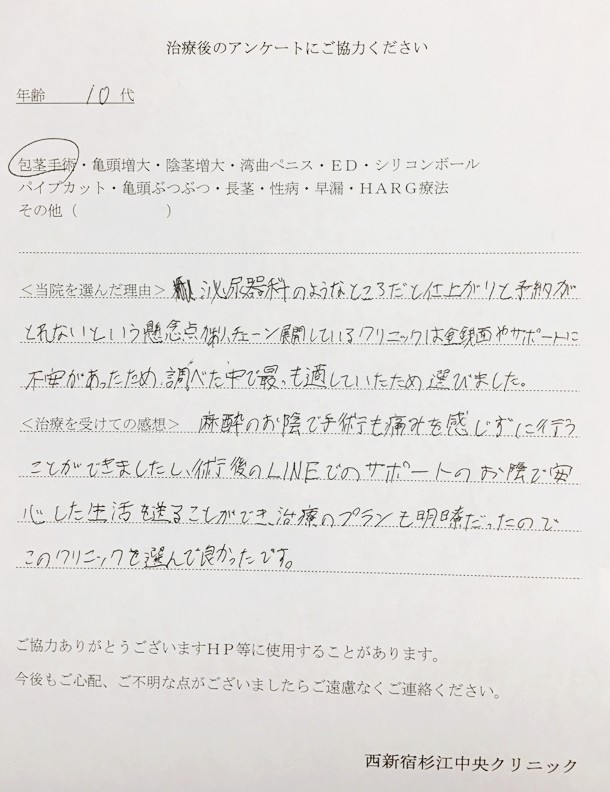 治療後のアンケートにご協力ください
年齢 10 代
包茎手術・亀頭増大・陰茎増大・湾曲ペニス・ED・シリコンボール
パイプカット・亀頭ぶつぶつ・長茎・性病・早漏・HARG療法
その他（ ）
＜当院を選んだ理由＞ 泌尿器科のようなところだと仕上がりと予約が
とれないという懸念点があり、チェーン展開しているクリニックは金銭面やサポートに
不安があったため、調べた中で最っも適していたため選びました。
＜治療を受けての感想＞ 麻酔のお陰で手術も痛みを感じずに行う
ことができましたし、術後のLINEでのサポートのお陰で安
心した生活を送ることができ、治療のプランも明瞭だったので
このクリニックを選んで良かったです。
ご協力ありがとうございますHP等に使用することがあります。
今後もご心配、ご不明な点がございましたらご遠慮なくご連絡ください。
西新宿杉江中央クリニック